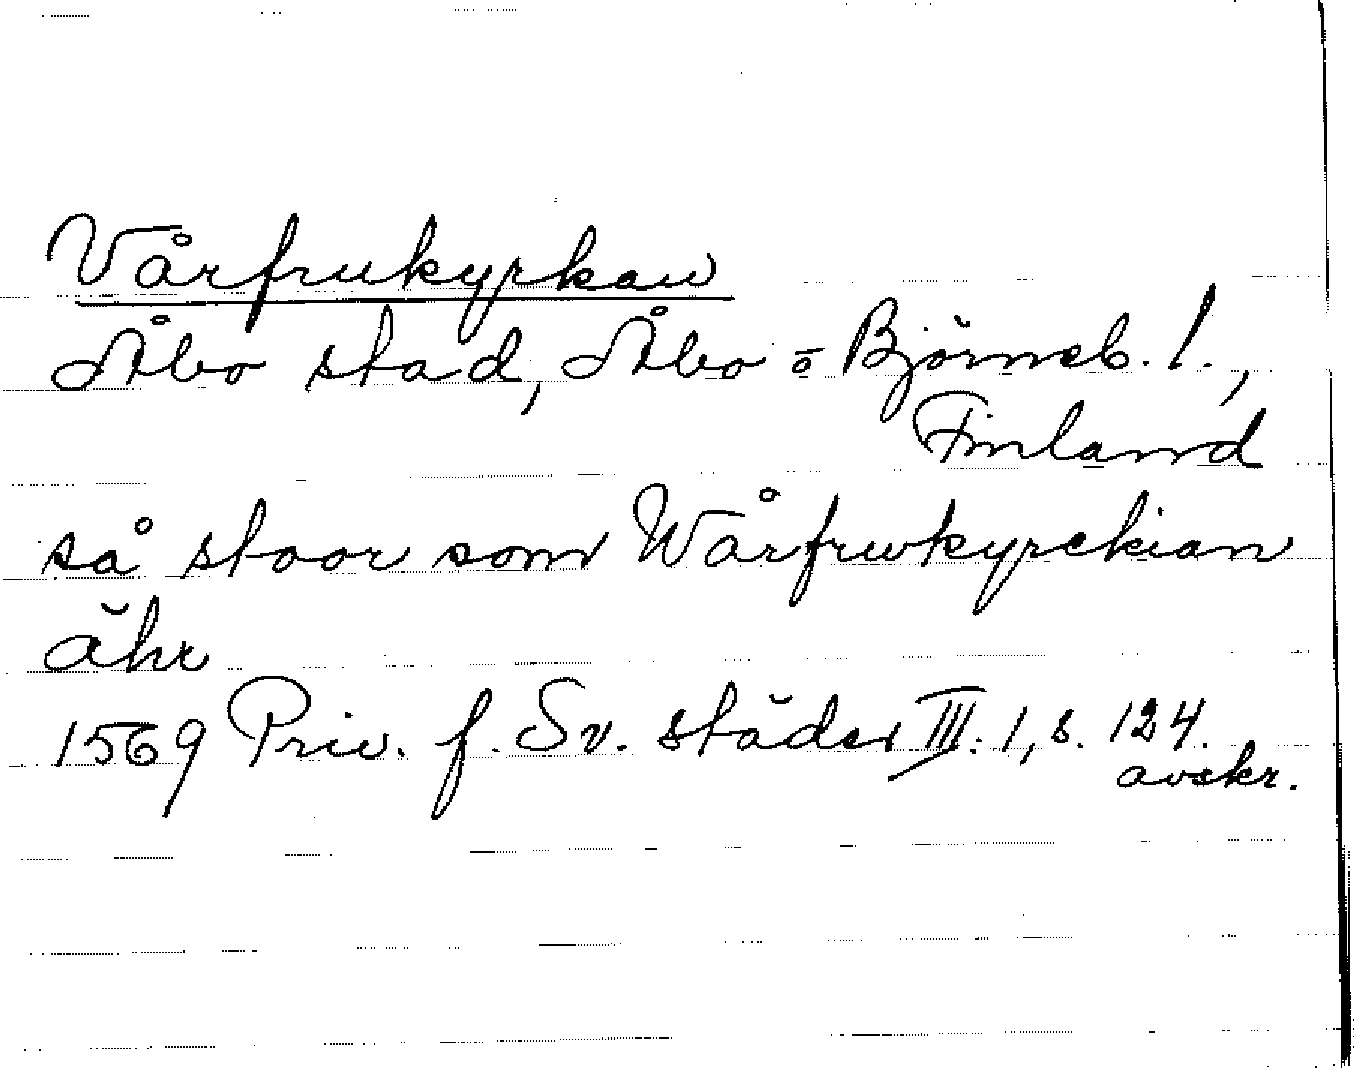 Vårfrukyrkan
Åbo stad, Åbo o Björneb. l.,
Finland
så stoor som Wårfrwkyrckian
ähr
1569 Priv. f. Sv. städer III: 1, s. 124.
avskr.